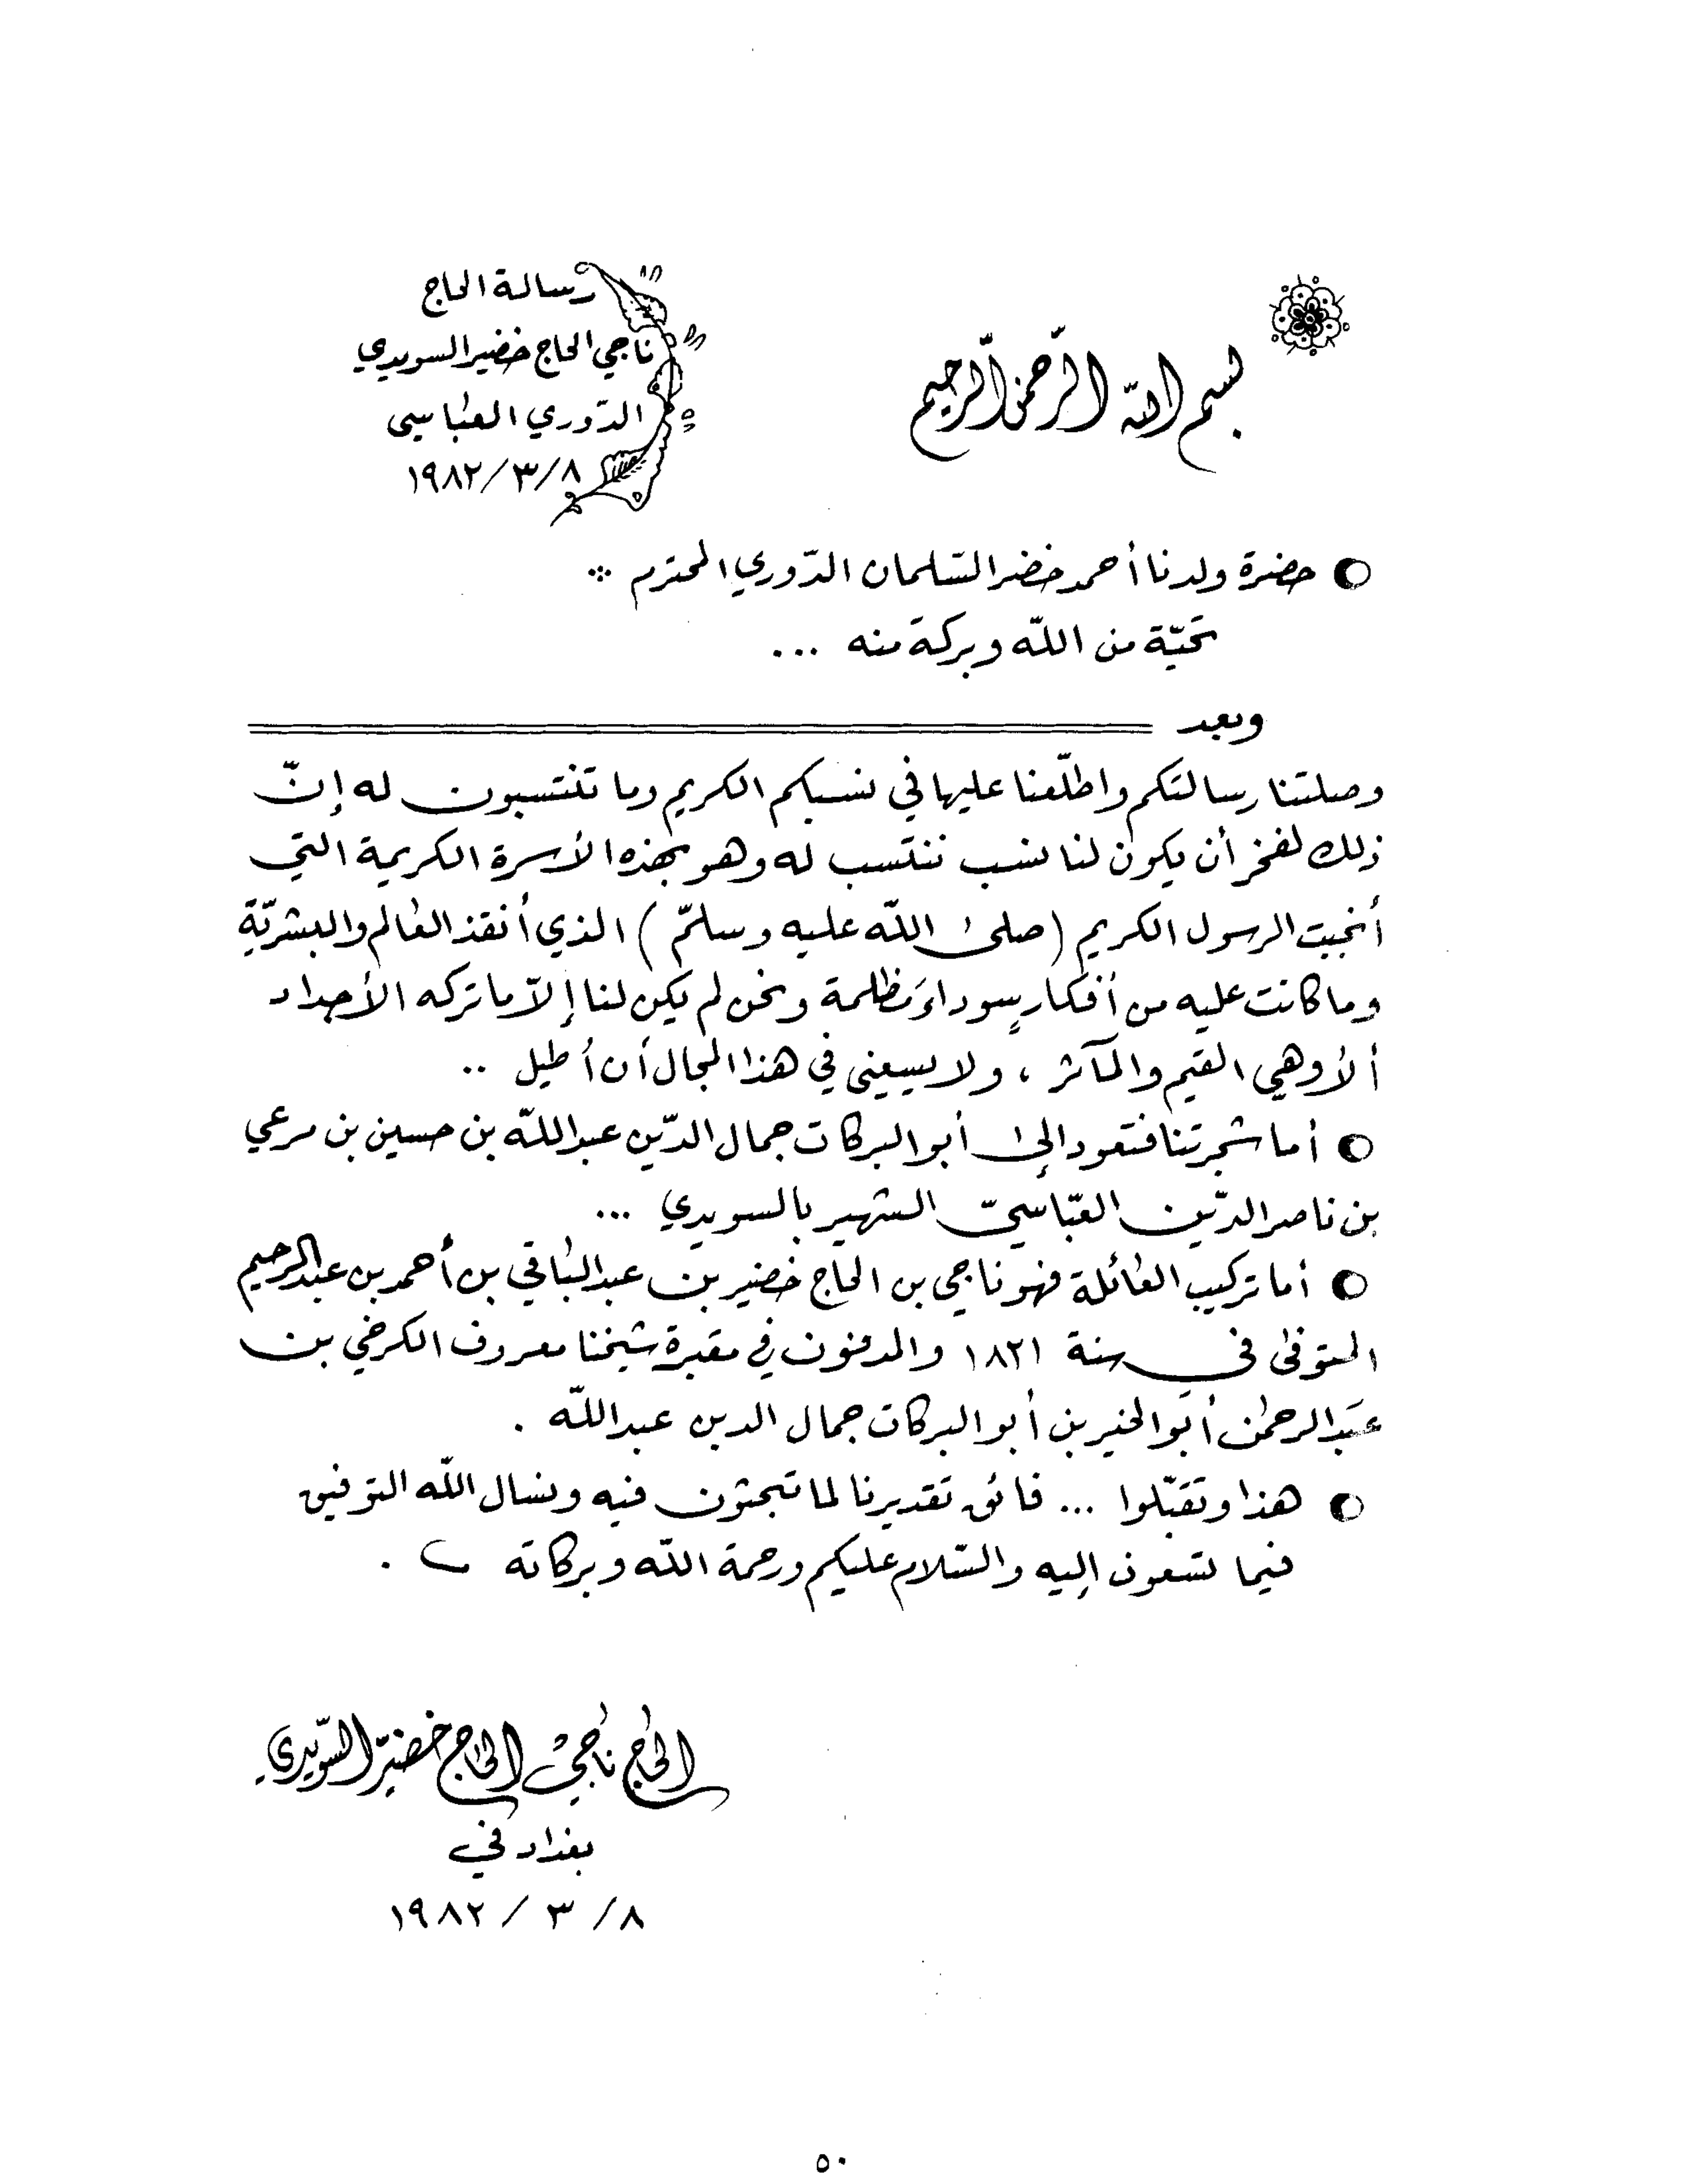 بسم الله الرّحمن الرّحيم
رسالة الحاج
ناجي الحاج خضير السويدي
الدّوري العباسي
١٩٨٢/٣/٨
حضرة ولدنا أحمد خضر السّلمان الدّوري المحترم
تحيّة من اللّه وبركة منه ...
وبعد
وصلتنا رسالتكم واطلّعنا عليها في نسبكم الكريم وما تنتسبون له إنّ
ذلك لفخر أن يكون لنا نسب ننتسب له وهو بهذه الأسرة الكريمة التي
أنجبت الرسول الكريم (صلى اللّه عليه وسلّم) الذي أنقذ العالم والبشريّة
وما كانت عليه من أفكارٍ سوداءَ مظلمة ونحن لم يكن لنا إلاّ ما تركه الأجداد
ألا وهي القيم والمآثر ، ولا يسعني في هذا المجال أن أطيل ..
أما شجرتنا فتعود إلى أبو البركات جمال الدّين عبد اللّه بن حسين بن مرعي
بن ناصر الدّين العبّاسيّ الشهير بالسويدي ...
أما تركيب العائلة فهو ناجي بن الحاج خضير بن عبد الباقي بن أحمد بن عبد الرحيم
المتوفى في سنة ١٨٢١ والمدفون في مقبرة شيخنا معروف الكرخي بن
عبد الرحمن أبو الخير بن أبو البركات جمال الدين عبد اللّه .
هذا وتقبّلوا ... فائق تقديرنا لما تبحثون فيه ونسال اللّه التوفيق
فيما تسعون إليه والسّلام عليكم ورحمة اللّه وبركاته .
الحاج ناجي الحاج خضير السّويدي
بغداد في
١٩٨٢ / ٣ / ٨
٥٠